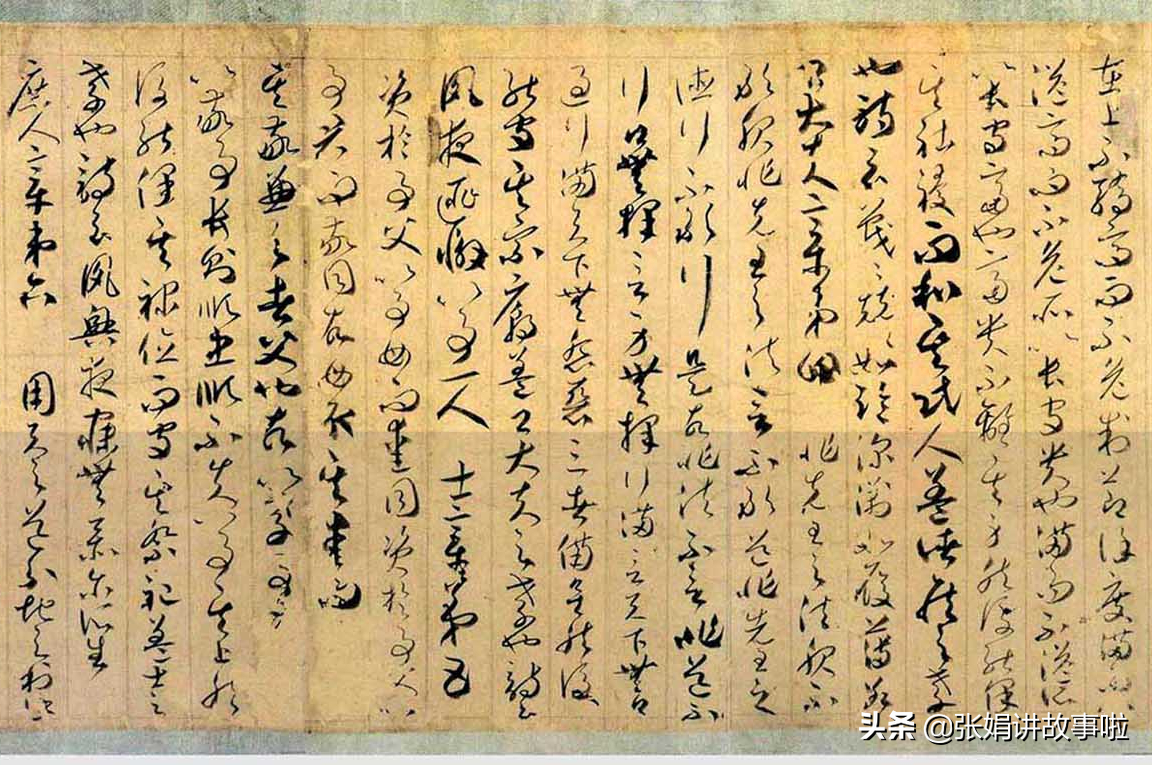 在上不驕高而不危制節謹度滿而不
溢高而不危所以長守貴也滿而不溢所
以長守富也富貴不離其身然後能保
其社稷而和其民人蓋諸侯之孝
也詩云戰〻兢〻如臨深淵如履薄冰
卿大夫章第四 非先王之法服不
敢服非先王之法言不敢道非先王之
德行不敢行是故非法不言非道不
行口無擇言身無擇行滿天下無口
過行滿天下無怨惡三者備矣然後
能守其宗廟蓋卿大夫之孝也詩云
夙夜匪懈以事一人 士章第五
資於事父以事母而愛同資於事父以
事君而敬同故母取其愛
其敬兼之者父也故以孝事君
以敬事長則順忠順不失以事其上然
後能保其祿位而守其祭祀蓋士之
孝也詩云夙興夜寐無忝爾所生
庶人章第六 用天之道分地之利
头条 @张娟讲故事啦